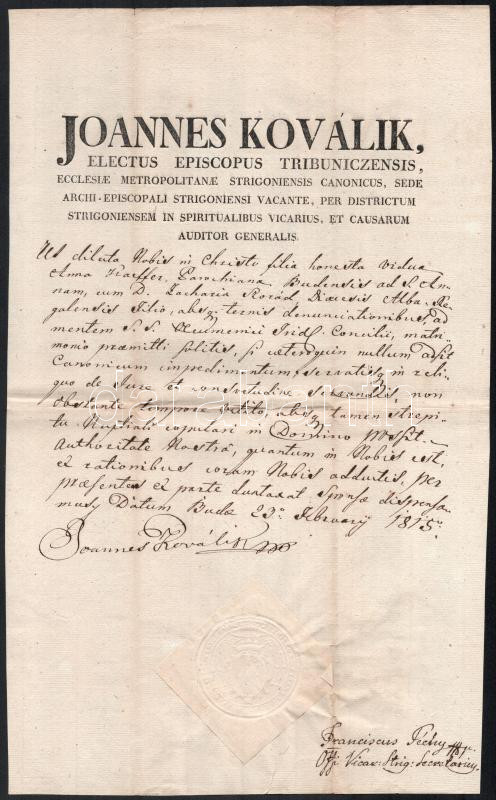 JOANNES KOVÁLIK,
ELECTUS EPISCOPUS TRIBUNICZENSIS,
ECCLESIÆ METROPOLITANÆ STRIGONIENSIS CANONICUS, SEDE
ARCHI-EPISCOPALI STRIGONIENSI VACANTE, PER DISTRICTUM
STRIGONIENSEM IN SPIRITUALIBUS VICARIUS, ET CAUSARUM
AUDITOR GENERALIS.
Ut dilecta Nobis in Christo filia honesta vidua
Anna Parochiana Budensis ad S. An-
nam, cum D. Zacharia Diæcesis Alba-Re-
galensis Filio, absq. ternis denunciationibus, ad
mentem S. S. Æcumenici Trid. Concilii, matri-
monio præmitti solitis, si cæteroquin nullum adsit
Canonicum impedimentum, servatis in reli-
quo de Jure et consvetudine servandis, non
obstante tempore vetito, absq. tamen strepi-
tu Nuptiali copulari in Domino possit
Authoritate Nostra, quantum in Nobis est,
ex rationibus coram Nobis adductis, per
præsentes ex parte duntaxat sponsæ dispensa-
mus, Datum Budæ 23a February 1815.
Joannes Koválik
Franciscus Péchy
Offi Vicar: Strig: Secretarius
darabanth